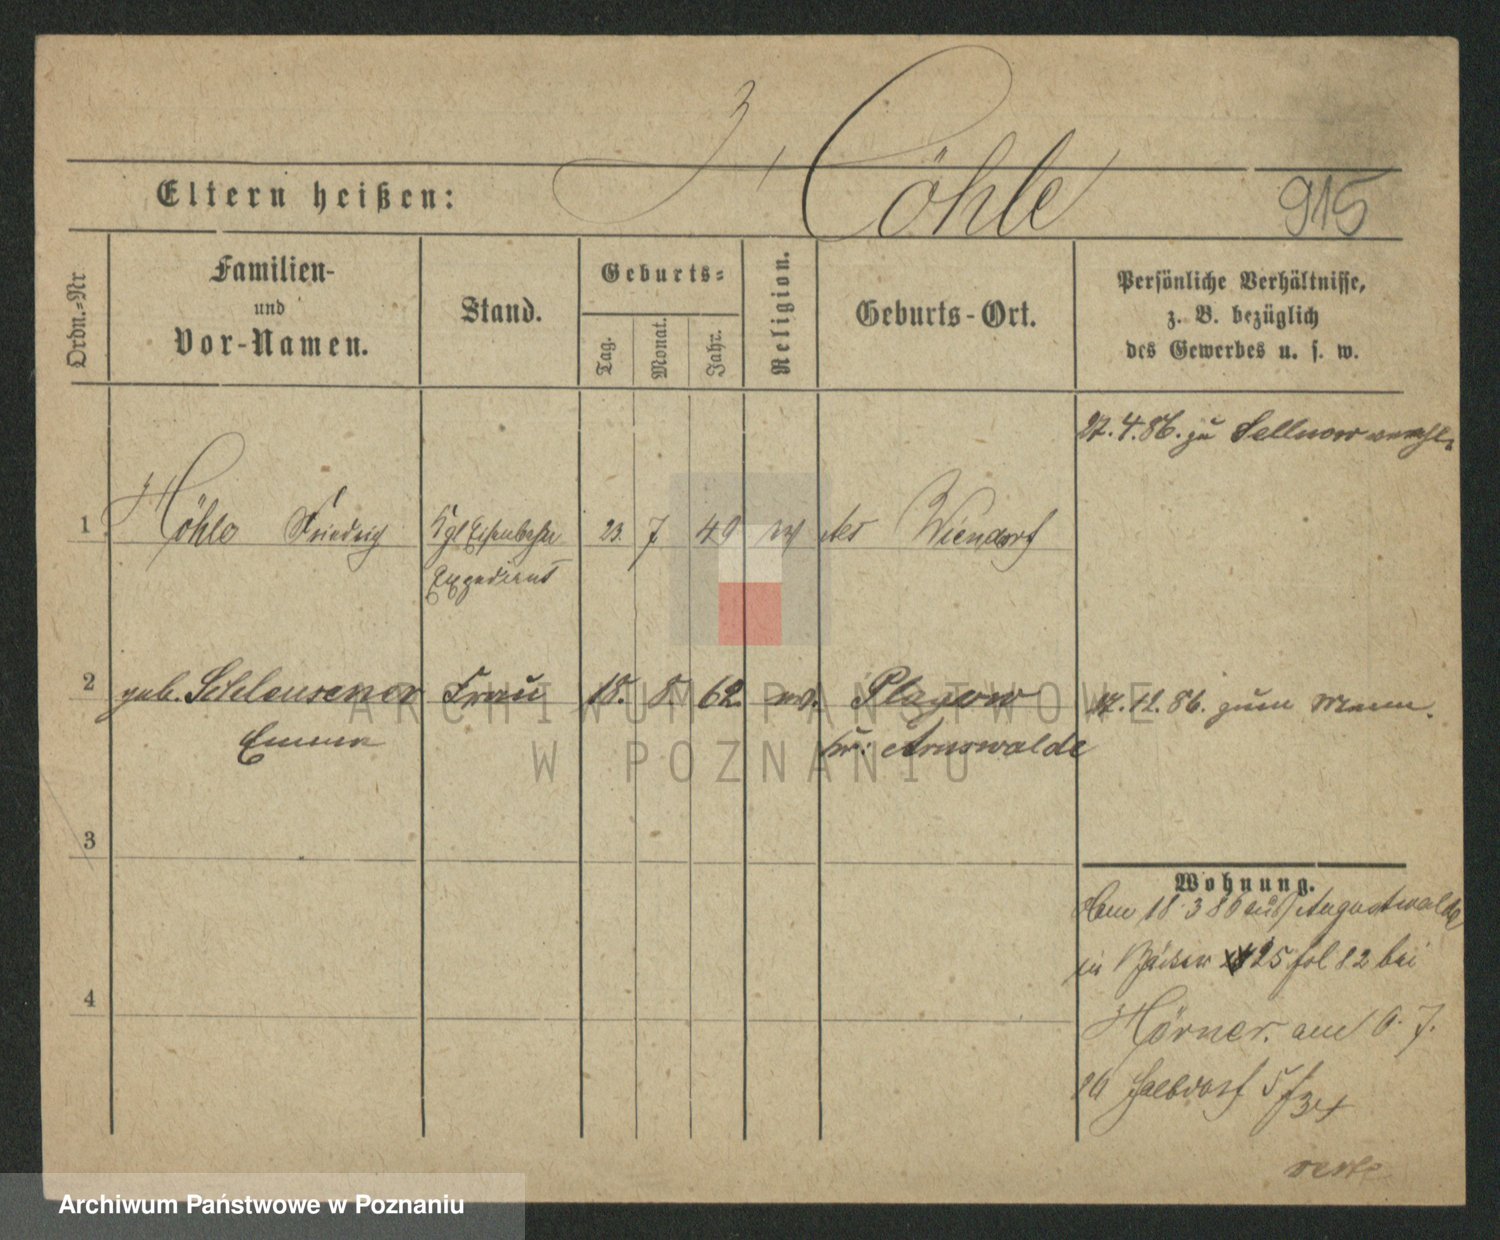 Höhle
915
Eltern heißen:
Ordn.-Nr.
Familien-
und
Vor-Namen.
Stand.
Geburts-
Tag.
Monat.
Jahr.
Religion.
Geburts-Ort.
Persönliche Verhältnisse,
z. B. bezüglich
des Gewerbes u. s. w.
27. 4. 86. zu Sellnow
1 Höhle Friedrich Kgl Eisenbahn 23. 7 49 Wiendorf
Expedient
2 geb. Schleusener Frau 18. 8. 62. ev. Plagow
Emma Kr: Arnswalde
17. 12. 86. zum Mann.
3
4
Wohnung.
18 3 86 aus Augustwalde
in 25 fol 82 bei
Hörner. am 6. 7.
86 Halbdorf 5
ARCHIWUM PAŃSTWOWE
W POZNANIU
Archiwum Państwowe w Poznaniu